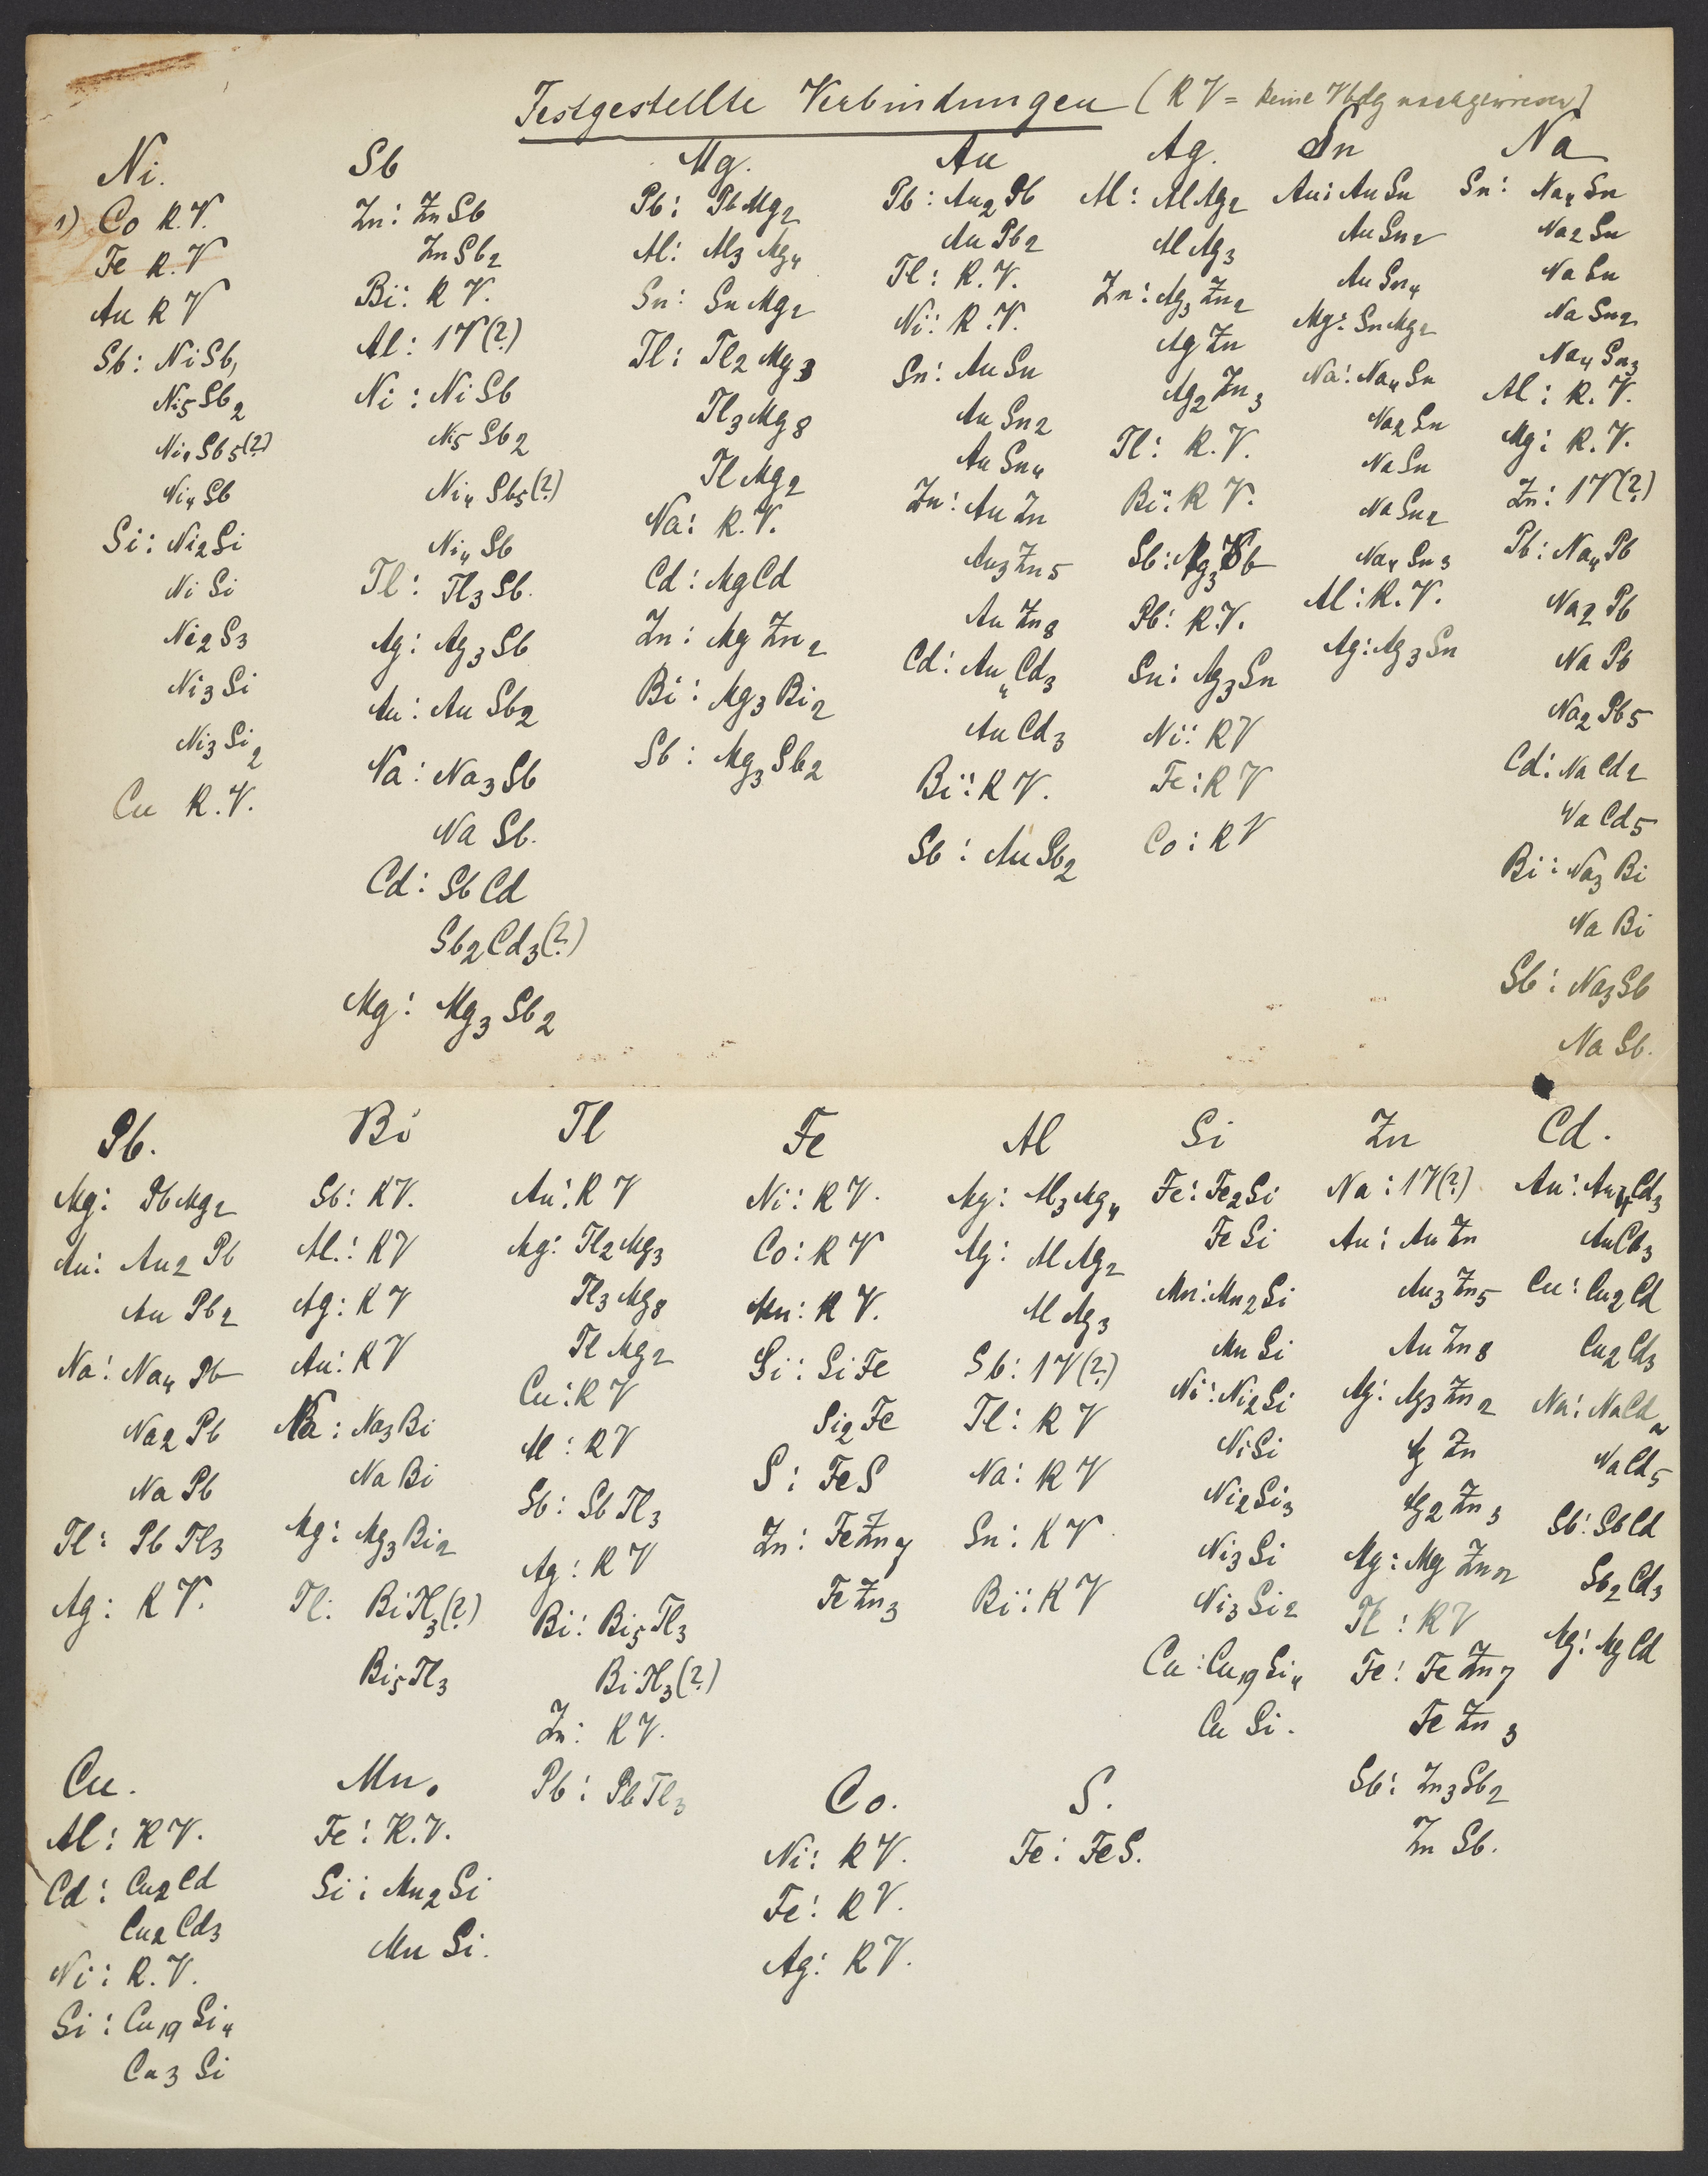 Festgestellte Verbindungen (KV = keine Vbdg nachgewiesen)
Ni.
1) Co K.V.
Fe K.V
Au K V
Sb: NiSb,
Ni5Sb2
Ni4Sb5(?)
Ni4Sb
Si: Ni2Si
NiSi
Ni2S3
Ni3Si
Ni3Si2
Cu K.V.
Sb
Zn: ZnSb
ZnSb2
Bi: K V.
Al: 1V(?)
Ni: NiSb
Ni5Sb2
Ni4Sb5(?)
Ni4Sb
Tl: Tl3Sb.
Ag: Ag3Sb
Au: AuSb2
Na: Na3Sb
NaSb.
Cd: SbCd
Sb2Cd3(?)
Mg: Mg3Sb2
Mg.
Pb: PbMg2
Al: Al3Mg4
Sn: SnMg2
Tl: Tl2Mg3
Tl3Mg8
TlMg2
Na: K.V.
Cd: MgCd
Zn: MgZn2
Bi: Mg3Bi2
Sb: Mg3Sb2
Au
Pb: Au2Pb
AuPb2
Tl: K.V.
Ni: K.V.
Sn: AuSn
AuSn2
AuSn4
Zn: AuZn
Au3Zn5
AuZn8
Cd: Au4Cd3
AuCd3
Bi: K V.
Sb: AuSb2
Ag.
Al: AlAg2
AlAg3
Zn: Ag3Zn2
AgZn
Ag2Zn3
Tl: K.V.
Bi: K V.
Sb: Ag3Sb
Pb: K.V.
Sn: Ag3Sn
Ni: KV
Fe: KV
Co: KV
Sn
Au: AuSn
AuSn2
AuSn4
Mg: SnMg2
Na: Na4Sn
Na2Sn
NaSn
NaSn2
Na4Sn3
Al: K.V.
Ag: Ag3Sn
Na
Sn: Na4Sn
Na2Sn
NaSn
NaSn2
Na4Sn3
Al: K.V.
Mg: K.V.
Zn: 1V(?)
Pb: Na4Pb
Na2Pb
NaPb
Na2Pb5
Cd: NaCd2
NaCd5
Bi: Na3Bi
NaBi
Sb: Na3Sb
NaSb.
Pb.
Mg: PbMg2
Au: Au2Pb
AuPb2
Na: Na4Pb
Na2Pb
NaPb
Tl: PbTl3
Ag: K V.
Bi
Sb: KV.
Al.: KV
Ag: KV
Au: KV
Na: Na3Bi
NaBi
Mg: Mg3Bi2
Tl: BiTl3(?)
Bi5Tl3
Tl
Au: K V
Mg: Tl2Mg3
Tl3Mg8
TlMg2
Cu: K V
Al: KV
Sb: SbTl3
Ag: K V
Bi: Bi5Tl3
BiTl3(?)
Zn: K V.
Pb: PbTl3
Fe
Ni: K V.
Co: K V
Mn: K V.
Si: SiFe
Si2Fe
S: FeS
Zn: FeZn7
FeZn3
Al
Mg: Al3Mg4
Ag: AlAg2
AlAg3
Sb: 1V(?)
Tl: K V
Na: K V
Sn: K V
Bi: K V
Si
Fe: Fe2Si
FeSi
Mn: Mn2Si
MnSi
Ni: Ni2Si
NiSi
Ni2Si3
Ni3Si
Ni3Si2
Cu: Cu19Si4
CuSi.
Zn
Na: 1V(?)
Au: AuZn
Au3Zn5
AuZn8
Ag: Ag3Zn2
AgZn
Ag2Zn3
Mg: MgZn2
Tl: KV
Fe: FeZn7
FeZn3
Sb: Zn3Sb2
ZnSb.
Cd.
Au: Au4Cd3
AuCd3
Cu: Cu2Cd
Cu2Cd3
Na: NaCd2
NaCd5
Sb: SbCd
Sb2Cd3
Mg: MgCd
Cu.
Al: KV.
Cd: Cu2Cd
Cu2Cd3
Ni: K.V.
Si: Cu19Si4
Cu3Si
Mn.
Fe: K.V.
Si: Mn2Si
MnSi.
Co.
Ni: KV.
Fe: KV.
Ag: KV.
S.
Fe: FeS.